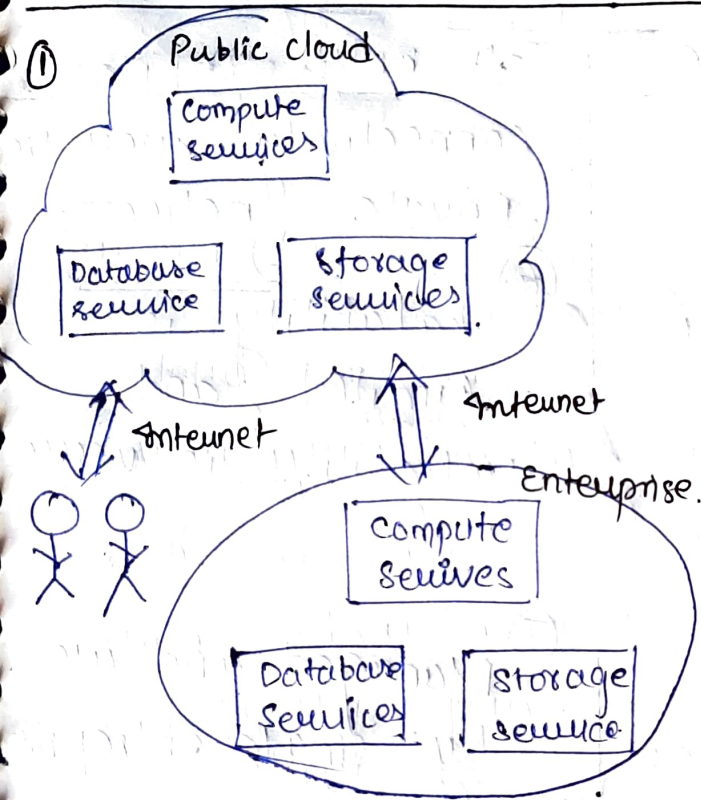 ①
Public cloud
Compute
services
Database
service
Storage
services
Internet
Internet
Enterprise.
Compute
serives
Database
services
Storage
service